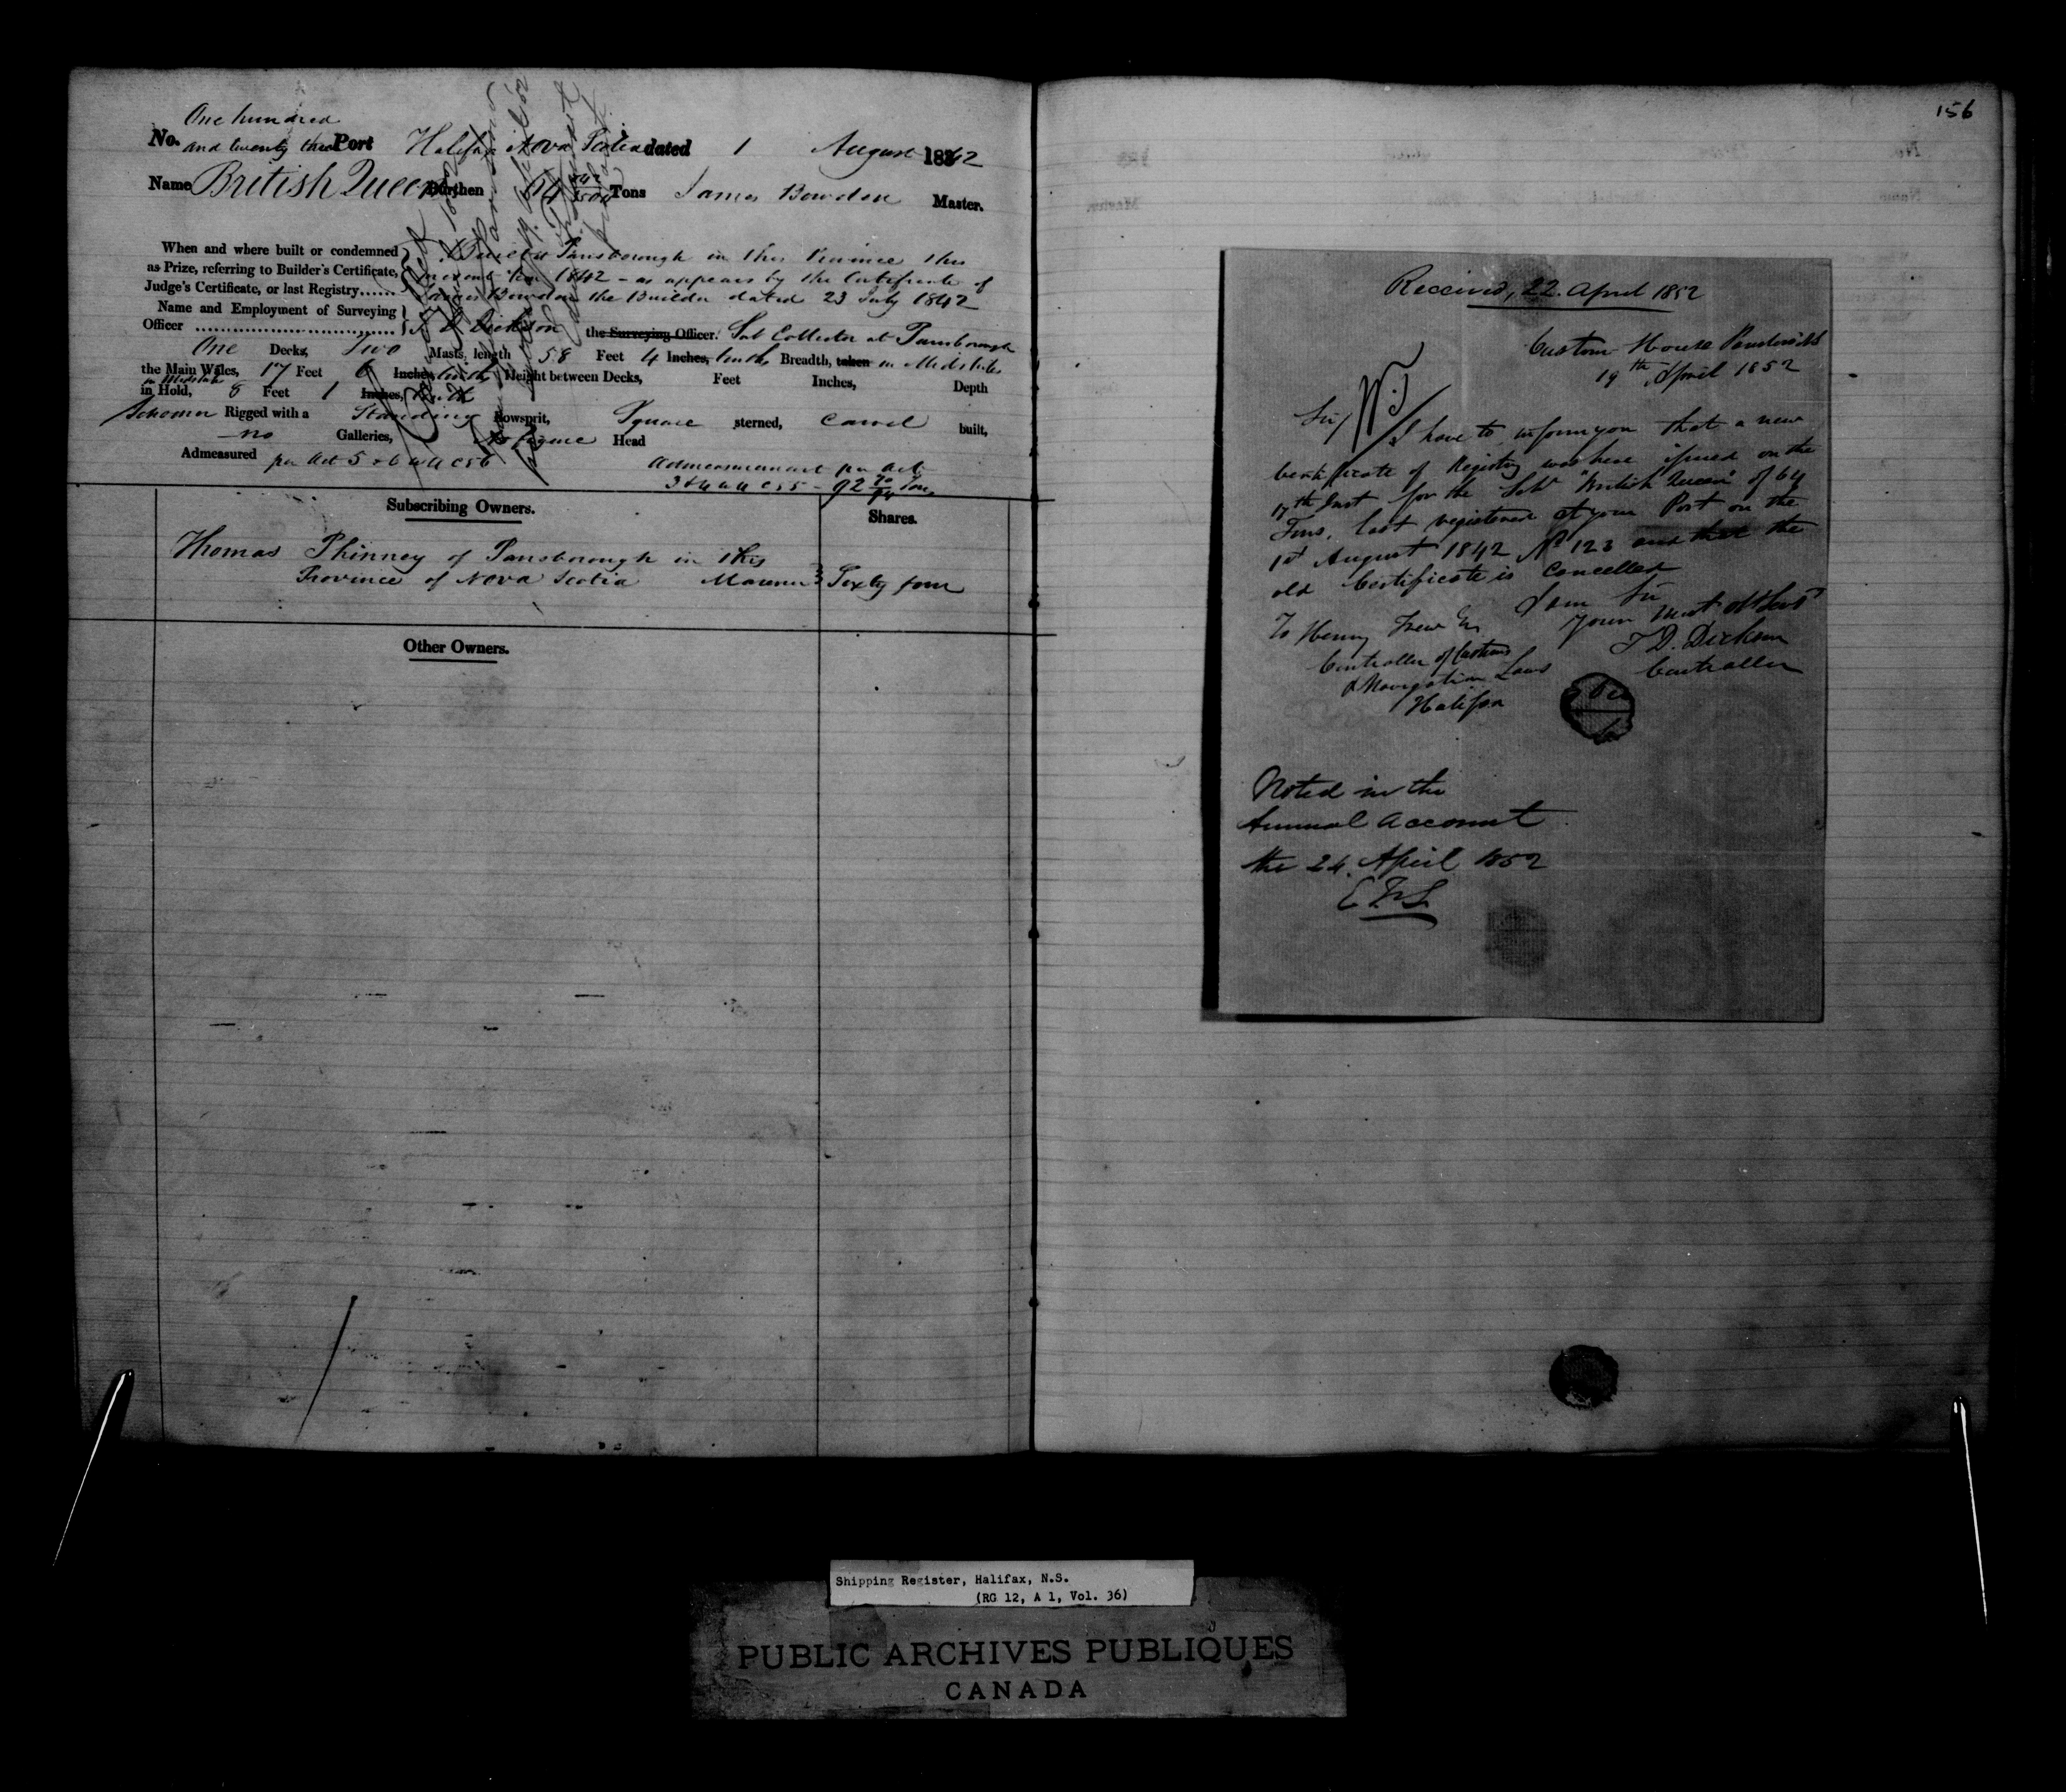 One hundred
No. and twenty three Port Halifax Nova Scotia dated 1 August 1842
Name British Queen Burthen 64 Tons James Bowden Master.
When and where built or condemned
as Prize, referring to Builder's Certificate,
Judge's Certificate, or last Registry......
Built at Parrsborough in this Province this
present Year 1842 - as appears by the Certificate of
James Bowden the Builder dated 23 July 1842
Name and Employment of Surveying
Officer T. D. Dickson the Surveying Officer. Sub Collector at Parrsborough
One Decks, Two Masts, length 58 Feet 4 Inches, tenths Breadth, taken in Midships
the Main Wales, 17 Feet 6 Inches, tenths Height between Decks, Feet Inches, Depth
in Midships
in Hold, 8 Feet 1 Inches, tenth
Schooner Rigged with a Standing Bowsprit, Square sterned, Carvel built,
no Galleries, No figure Head
Admeasured per Act 5 & 6 W 4 C 56
Admeasurement per Act
3 & 4 W 4 C 55 - 92 Tons
Subscribing Owners.
Shares.
Thomas Phinney of Parrsborough in this
Province of Nova Scotia Mariner } Sixty four
Other Owners.
156
Received, 22. April 1852
Custom House Parrsboro
19th April 1852
Sir,
I have to inform you that a new
Certificate of Registry was here issued on the
17th Inst for the Schr "British Queen" of 64
Tons, last registered at your Port on the
1st August 1842 No 123 and that the
old Certificate is Cancelled
I am Sir
Your most Obt Servt
T D. Dickson
Controller
To Henry Trew Esq
Controller of Customs
& Navigation Laws
Halifax
Noted in the
Annual Account
the 24. April 1852
Shipping Register, Halifax, N.S.
(RG 12, A 1, Vol. 36)
PUBLIC ARCHIVES PUBLIQUES
CANADA